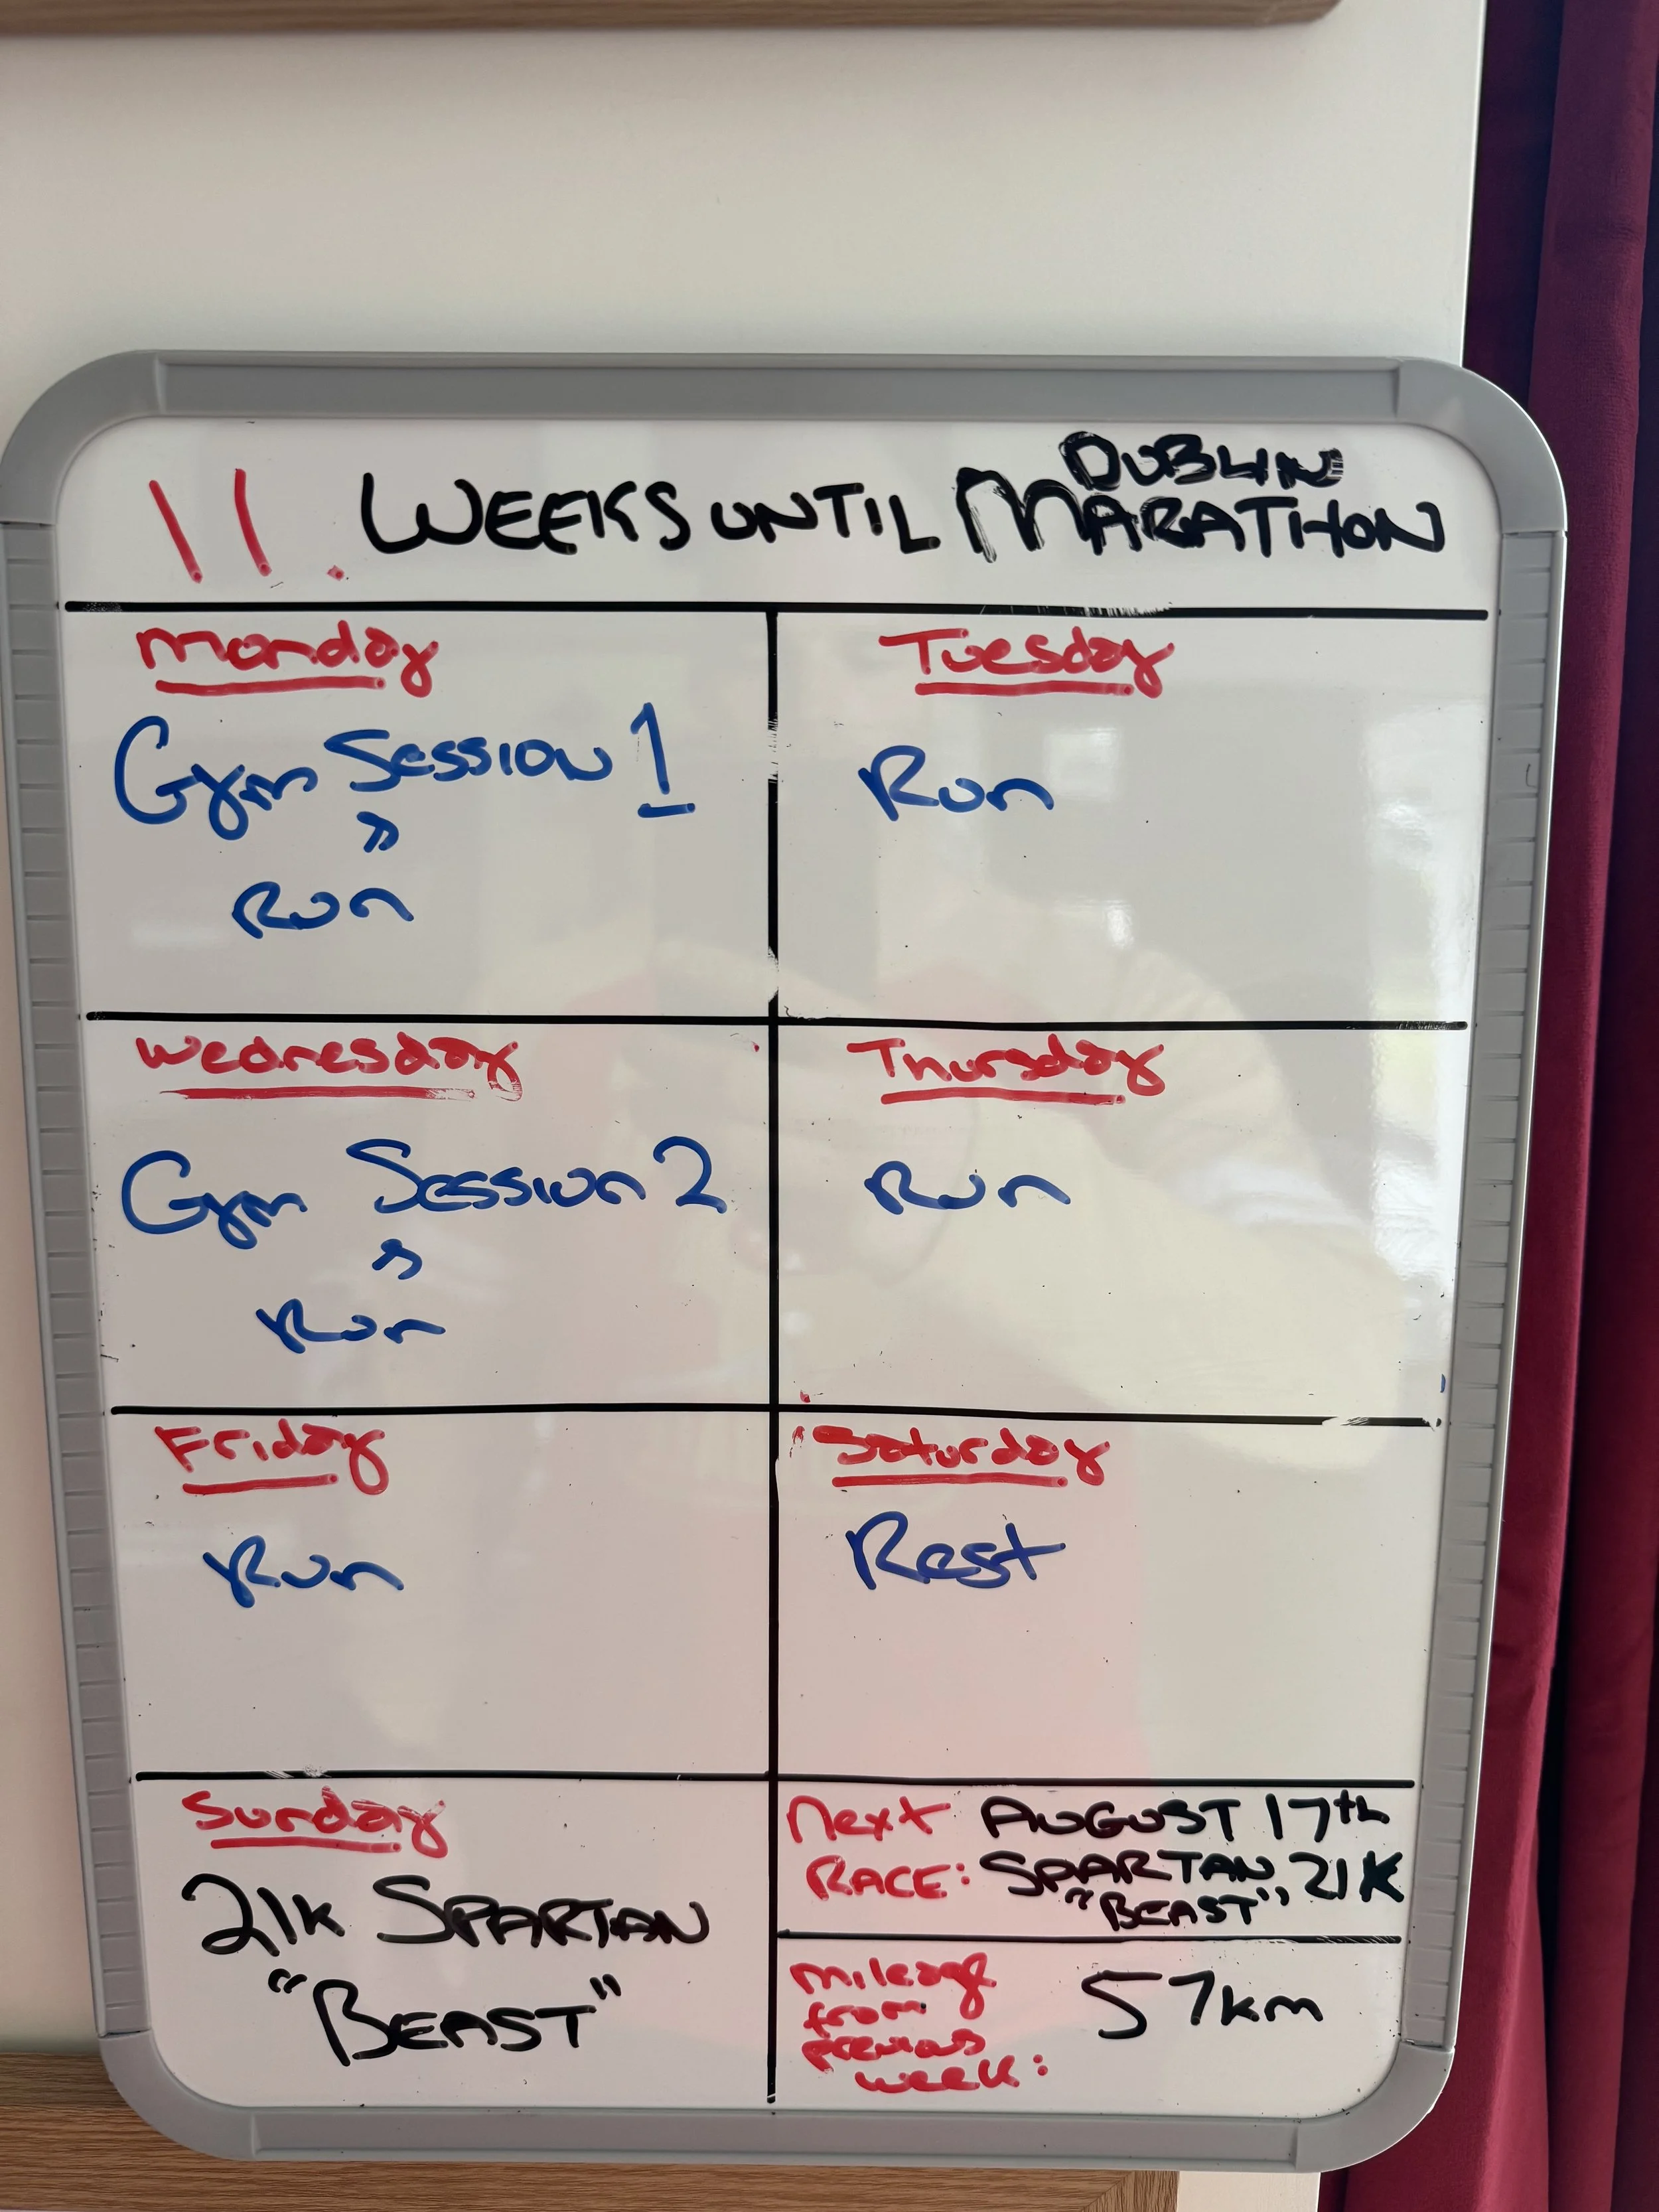 11. WEEKS UNTIL DUBLIN MARATHON
Monday
Gym Session 1
»
Run
Tuesday
Run
Wednesday
Gym Session 2
»
Run
Thursday
Run
Friday
Run
Saturday
Rest
Sunday
21K SPARTAN
"BEAST"
Next AUGUST 17th
RACE: SPARTAN 21K
"BEAST"
Mileage
from
previous
week:
57km